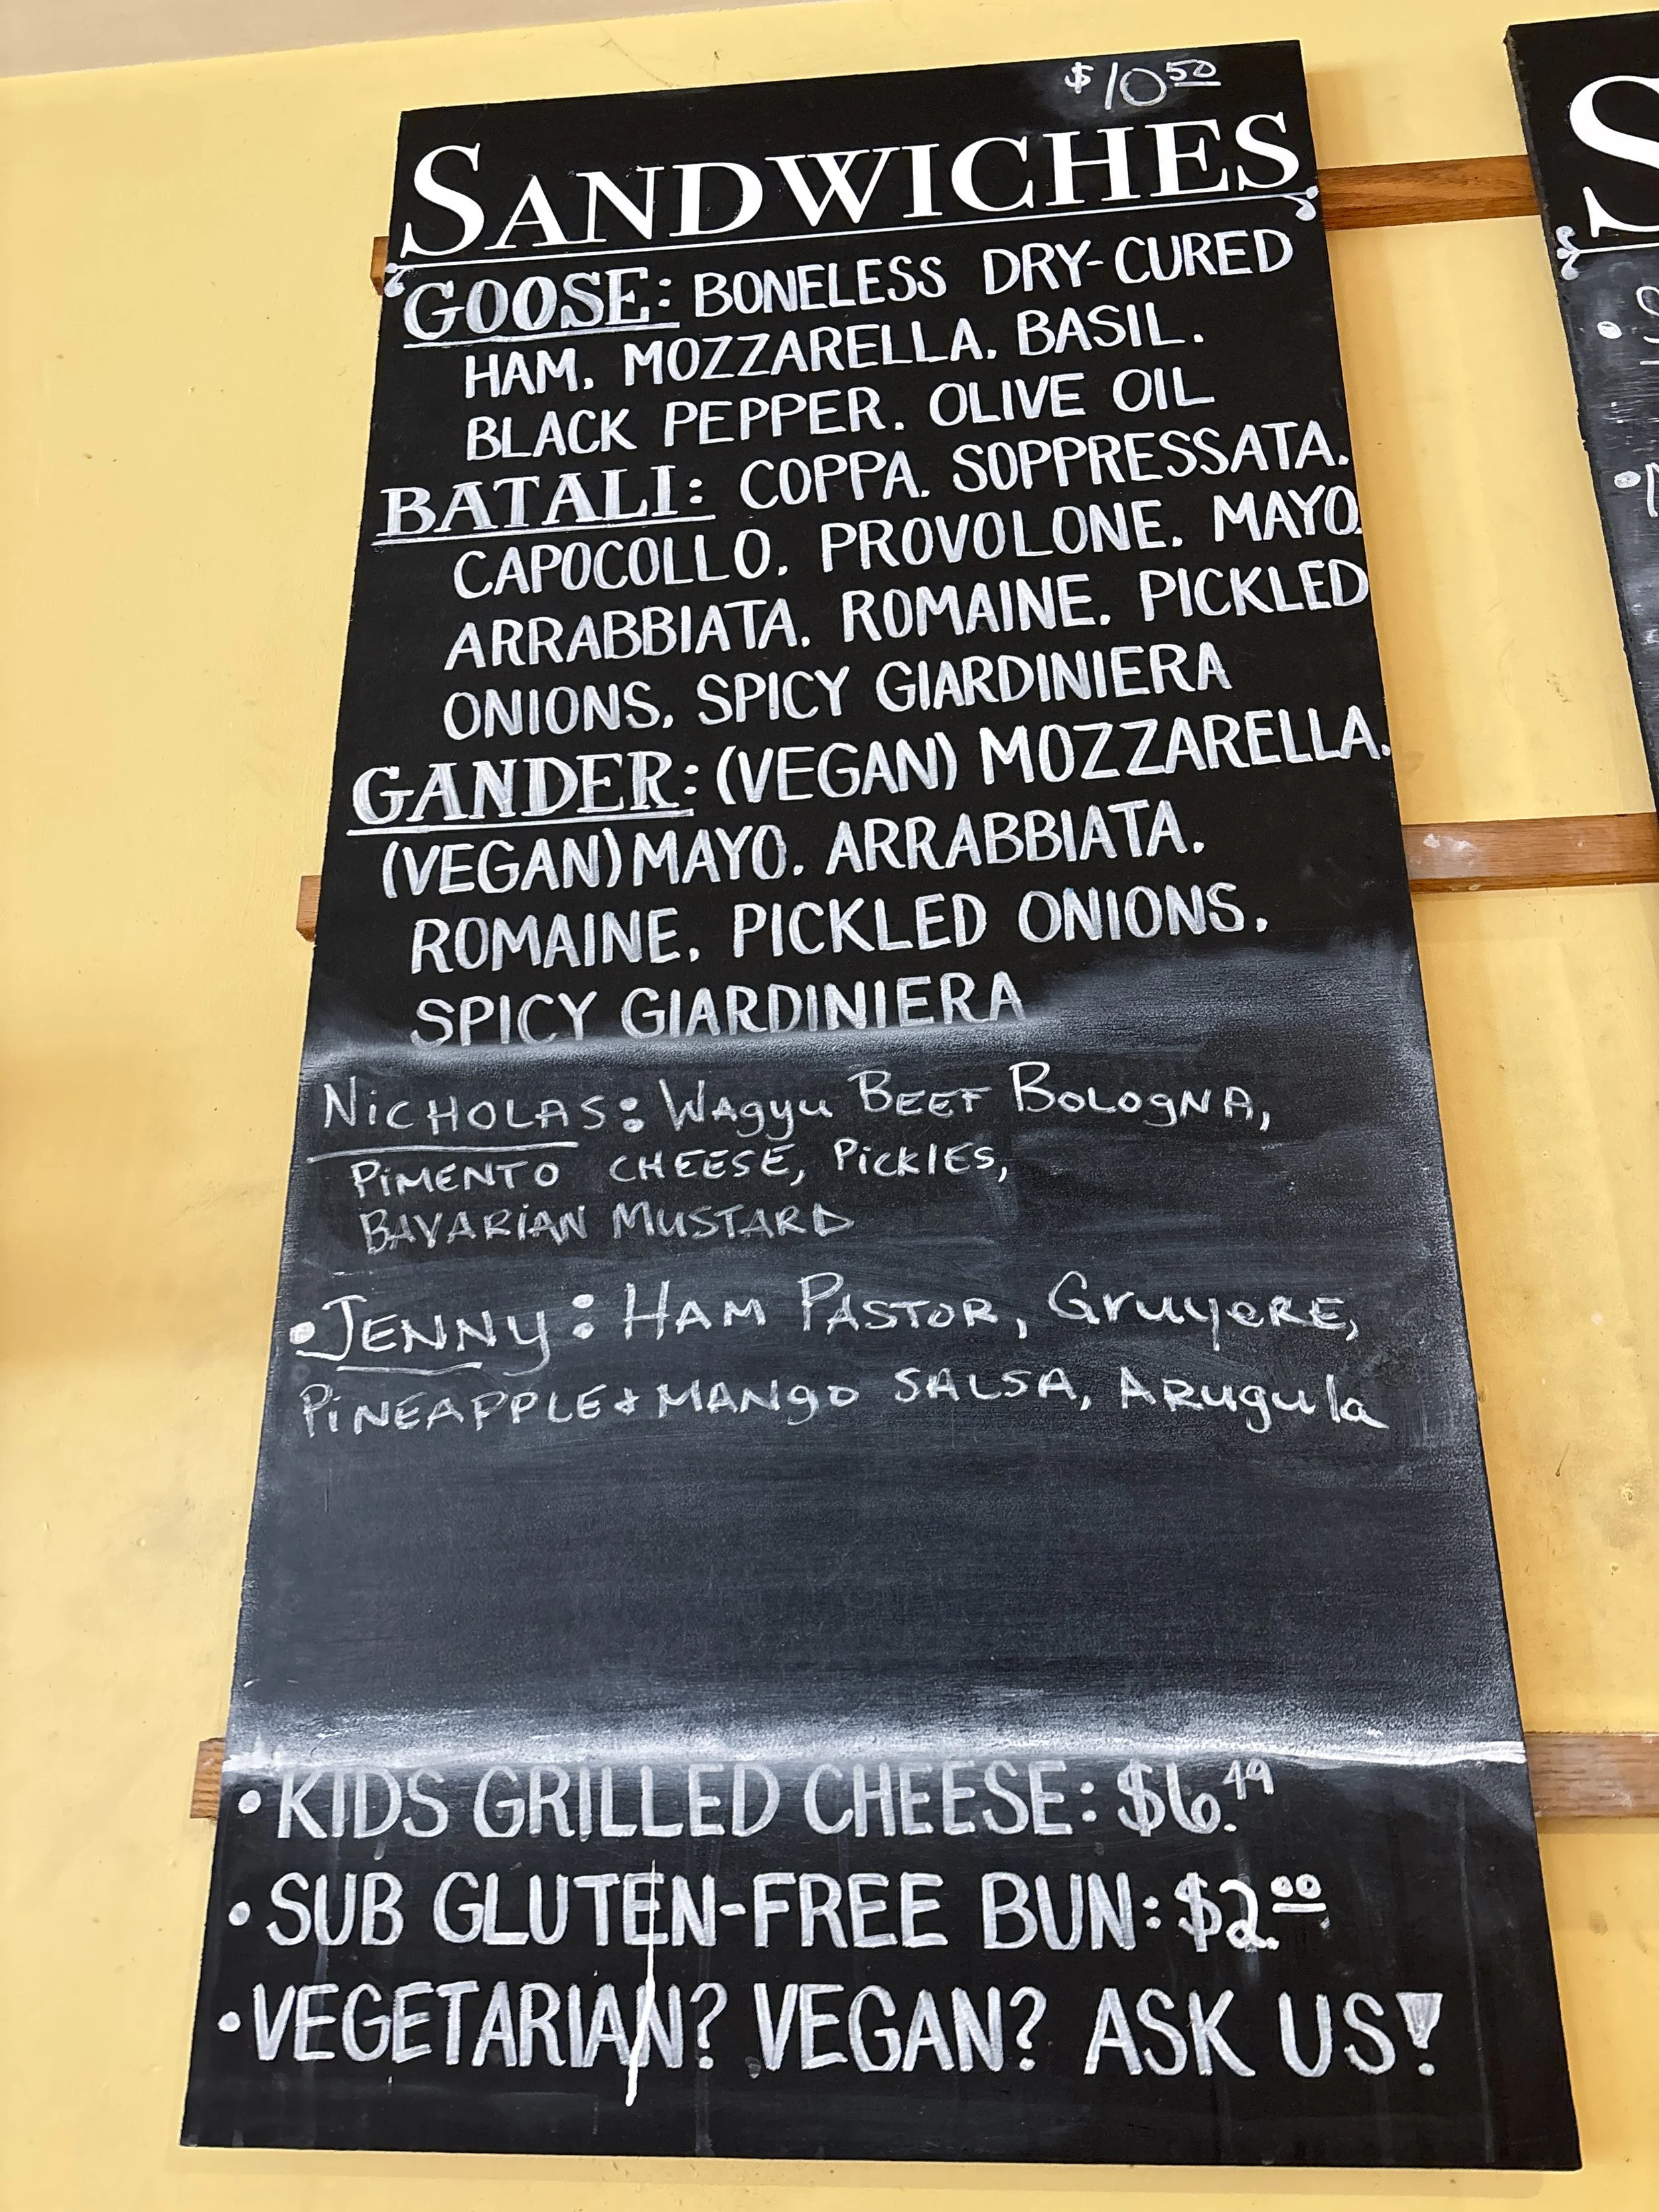 $10.50
SANDWICHES
GOOSE: BONELESS DRY-CURED
HAM, MOZZARELLA, BASIL,
BLACK PEPPER, OLIVE OIL
BATALI: COPPA, SOPPRESSATA,
CAPOCOLLO, PROVOLONE, MAYO,
ARRABBIATA, ROMAINE, PICKLED
ONIONS, SPICY GIARDINIERA
GANDER: (VEGAN) MOZZARELLA,
(VEGAN) MAYO, ARRABBIATA,
ROMAINE, PICKLED ONIONS,
SPICY GIARDINIERA
NICHOLAS: WAgyu BEEF BOLOgNA,
PiMENTO CHEESE, PiCKlES,
BAVARiAN MUSTARD
•JENNY: HAM PASTOR, GruyeRE,
PiNEAPPLE & MANgO SALSA, ARugula
•KIDS GRILLED CHEESE: $6.49
•SUB GLUTEN-FREE BUN: $2.00
•VEGETARIAN? VEGAN? ASK US!